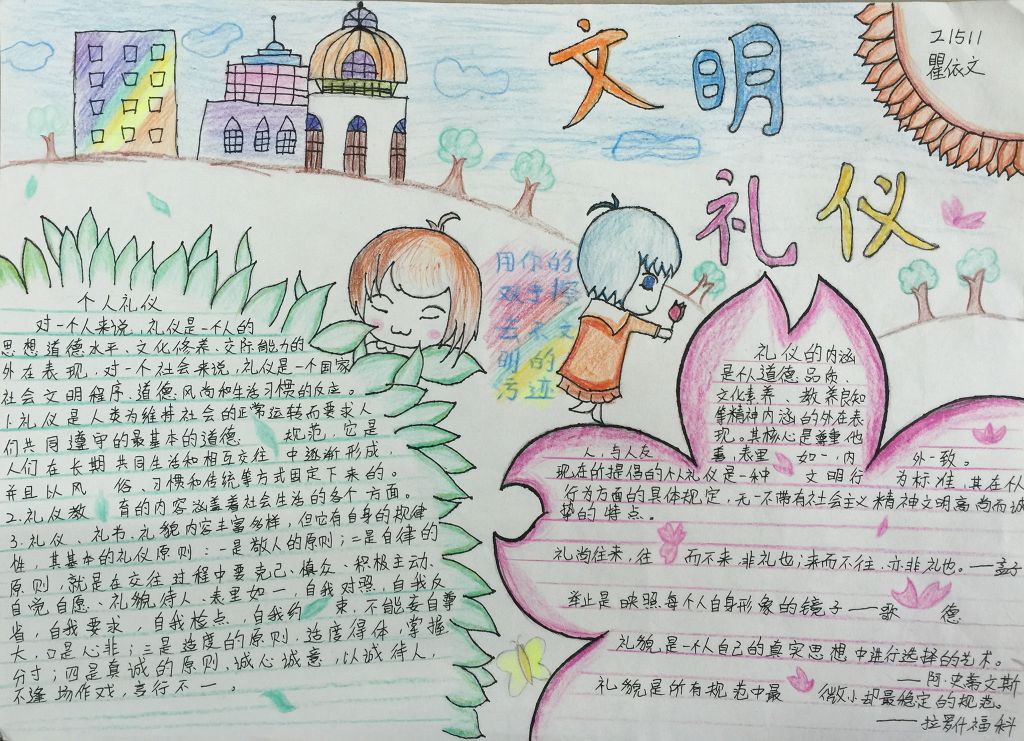 文明
礼仪
21511
瞿依文
用你的
双手擦
去不文
明的
污迹
个人礼仪
对一个人来说,礼仪是一个人的
思想道德水平、文化修养、交际能力的
外在表现,对一个社会来说,礼仪是一个国家
社会文明程序、道德风尚和生活习惯的反应。
1.礼仪是人类为维持社会的正常运转而要求人
们共同遵守的最基本的道德 规范,它是
人们在长期共同生活和相互交往 中逐渐形成,
并且以风 俗、习惯和传统等方式固定下来的。
2.礼仪教 育的内容涵盖着社会生活的各个方面。
3.礼仪、礼节、礼貌内容丰富多样,但它有自身的规律
性,其基本的礼仪原则:一是敬人的原则;二是自律的
原则,就是在交往过程中要克己、慎众、积极主动、
自觉自愿、礼貌待人、表里如一,自我对照,自我反
省,自我要求 ,自我检点,自我约 束,不能妄自尊
大,口是心非;三是适度的原则,适度得体,掌握
分寸;四是真诚的原则,诚心诚意,以诚待人,
不逢场作戏,言行不一。
礼仪的内涵
是个人道德品质、
文化素养、教养良知
等精神内涵的外在表
现。其核心是尊重他
人,与人友 善,表里 如一,内 外一致。
现在所提倡的个人礼仪是一种 文明行 为标准,其在个人
行为方面的具体规定,无一不带有社会主义精神文明高尚而诚
挚的特点。
礼尚往来,往 而不来,非礼也;来而不往,亦非礼也。——孟子
举止是映照每个人自身形象的镜子——歌 德
礼貌是一个人自己的真实思想中进行选择的艺术。
——阿·史蒂文斯
礼貌是所有规范中最 微小却最稳定的规范。
——拉罗什福科